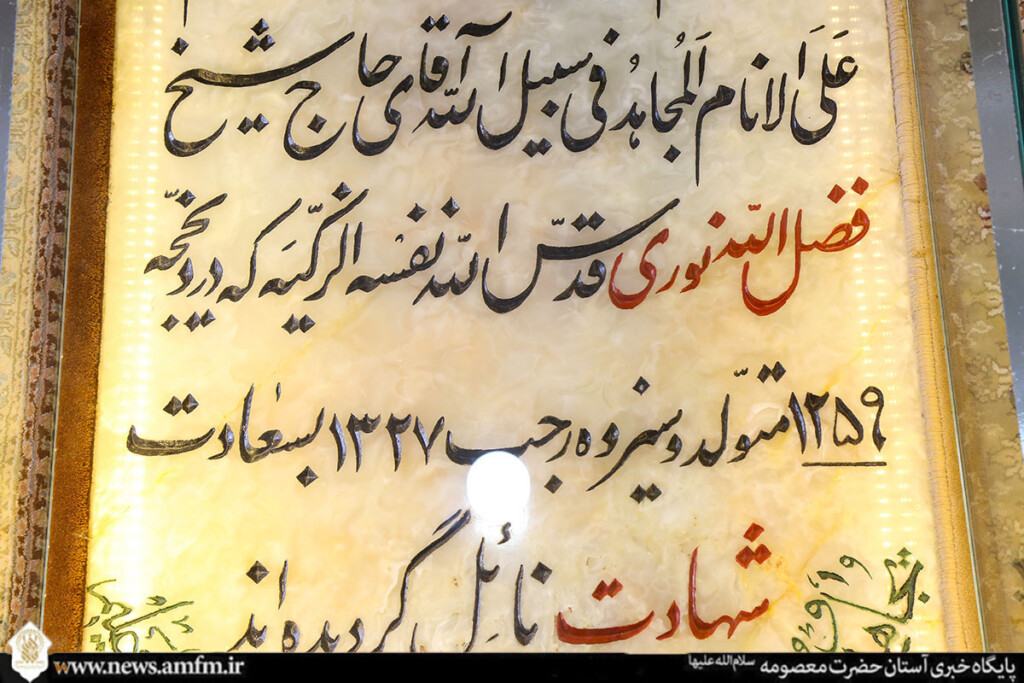 عَلَی الانام المُجاهِد فی سبیل الله آقای حاج شیخ
فضل الله نوری قدّس الله نفسه الزکیّه که در ذیحجّه
۱۲۵۹ متولّد و سیزده رجب ۱۳۲۷ بسعادت
شهادت نائل گردیده اند
www.news.amfm.ir
پایگاه خبری آستان حضرت معصومه سلام‌الله‌علیها